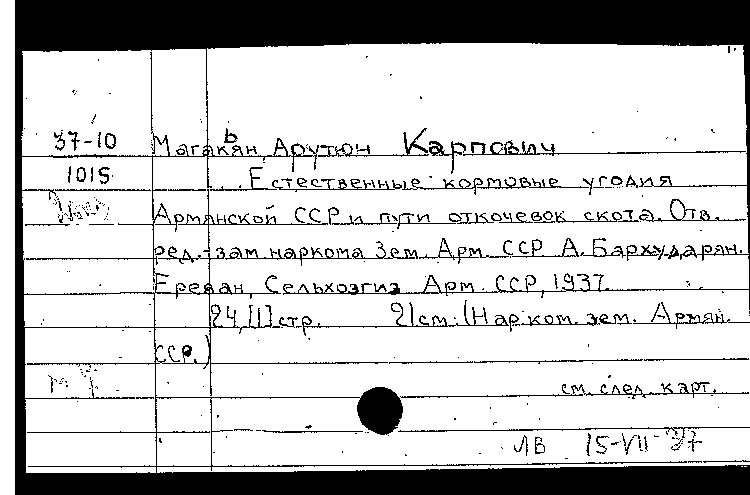 37-10 Магакьян, Арутюн Карпович
1015 Естественные кормовые угодия
Армянской ССР и пути откочевок скота. Отв.
ред.-зам. наркома Зем. Арм. ССР А. Бархударян.
Ереван, Сельхозгиз Арм. ССР, 1937.
24,[1]стр. 21см. (Нар.ком. зем. Армян.
ССР.)
см. след. карт.
ЛВ 15-VII-37